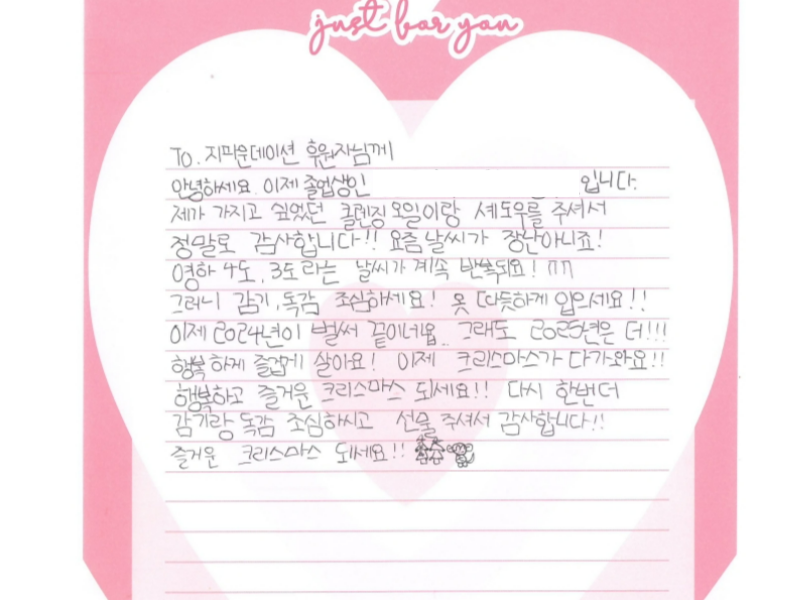 just for you
To. 지파운데이션 후원자님께
안녕하세요. 이제 졸업생인 입니다.
제가 가지고 싶었던 클렌징오일이랑 셰도우를 주셔서
정말로 감사합니다!! 요즘날씨가 장난아니죠!
영하 4도, 3도라는 날씨가 계속 반복되요! ㅠㅠ
그러니 감기, 독감 조심하세요! 옷 따듯하게 입으세요!!
이제 2024년이 벌써 끝이네욥.. 그래도 2025년은 더!!!
행복하게 즐겁게 살아요! 이제 크리스마스가 다가와요!!
행복하고 즐거운 크리스마스 되세요!! 다시 한번더
감기랑 독감 조심하시고 선물 주셔서 감사합니다!!
즐거운 크리스마스 되세요!!